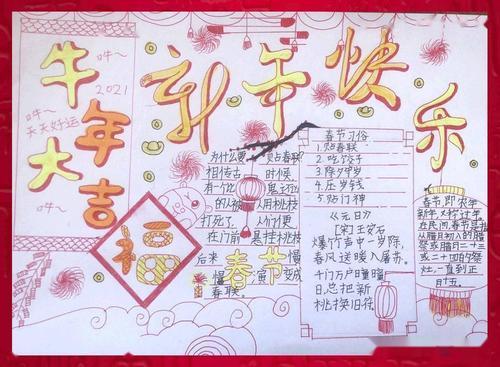 新年快乐
牛年大吉
哞~
2021
哞~
天天好运
哞~
福
为什么要贴春联?
相传古时候
有一个
鬼
的人被人用桃枝
打死了, 人们便
在门前悬挂桃枝
后来慢
慢演变成
春联。
春节
春节习俗
1.贴春联
2.吃饺子
3.除夕守岁
4.压岁钱
5.贴门神
《元日》
[宋]王安石
爆竹声中一岁除,
春风送暖入屠苏。
千门万户曈曈
日,总把新
桃换旧符
春节即农年
新年又称过年
在民间,春节是指
从腊月初八的腊
祭或腊月二十三
或二十四的祭
灶,一直到正
月十五。